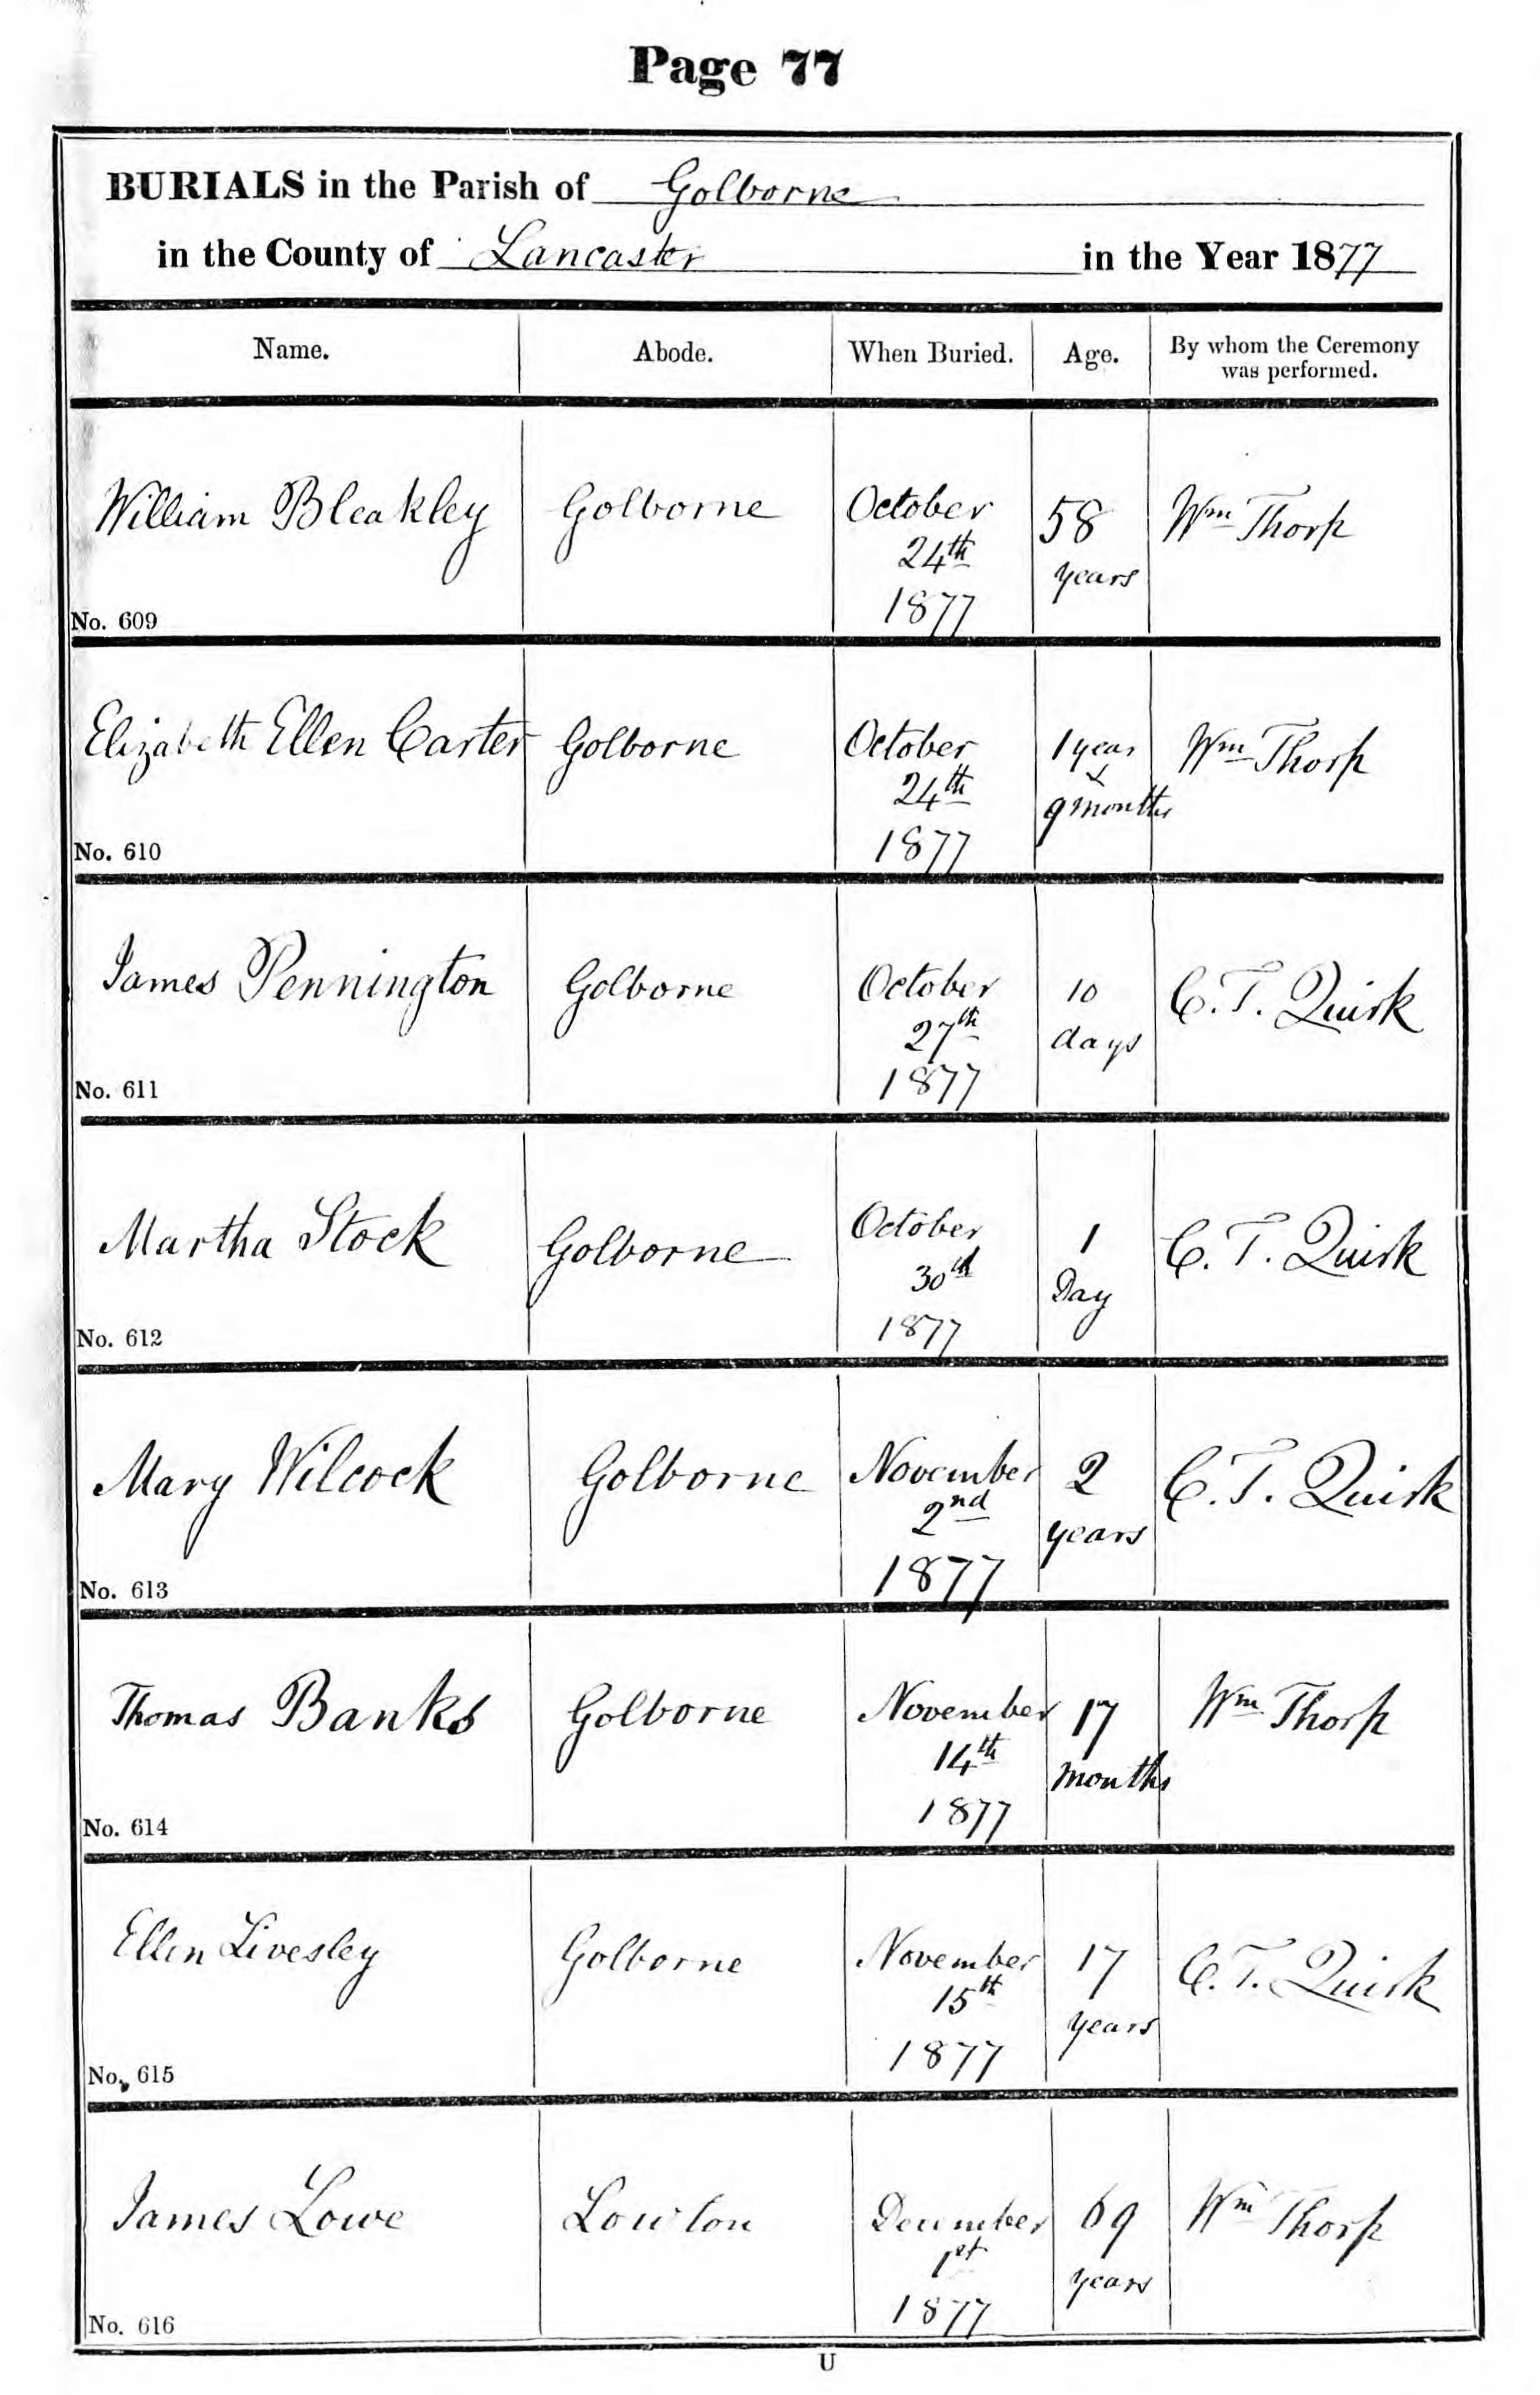 Page 77
BURIALS in the Parish of Golborne
in the County of Lancaster in the Year 1877
Name. Abode. When Buried. Age. By whom the Ceremony
was performed.
William Bleakley Golborne October 58 Wm Thorp
24th years
1877
No. 609
Elizabeth Ellen Carter Golborne October 1 year Wm Thorp
24th &
9 months
1877
No. 610
James Pennington Golborne October 10 C. T. Quirk
27th days
1877
No. 611
Martha Stock Golborne October 1 C. T. Quirk
30th Day
1877
No. 612
Mary Wilcock Golborne November 2 C. T. Quirk
2nd years
1877
No. 613
Thomas Banks Golborne November 17 Wm Thorp
14th months
1877
No. 614
Ellen Livesley Golborne November 17 C. T. Quirk
15th years
1877
No. 615
James Lowe Lowton December 69 Wm Thorp
1st years
1877
No. 616
U